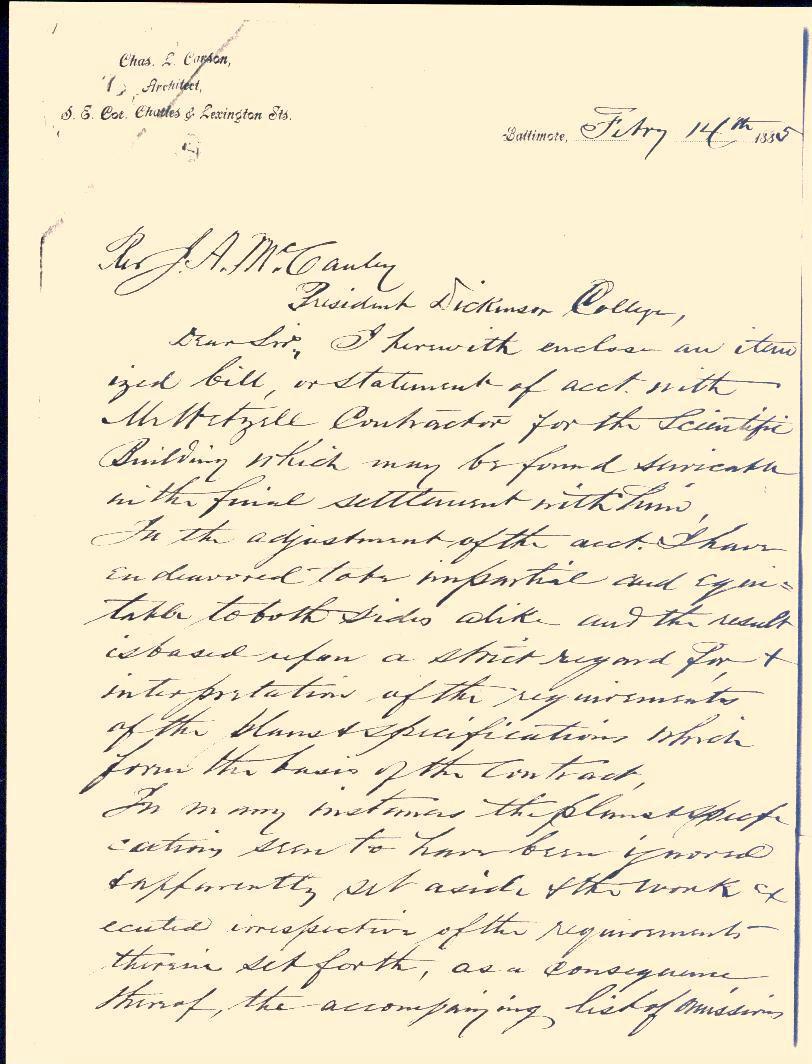 Chas. L. Carson,
Architect,
S. E. Cor. Charles & Lexington Sts.
Baltimore, Febry 14th 1885
Rev J. A. McCauley
President Dickinson College,
Dear Sir, I herewith enclose an item
ized bill, or statement of acct. with
Mr Wetzell Contractor for the Scientific
Building which may be found servicable
in the final settlement with him,
In the adjustment of the acct. I have
endeavored to be impartial and equi=
table to both sides alike and the result
is based upon a strict regard for, &
interpretation of the requirements
of the plans & specifications which
form the basis of the Contract,
In many instances the plans & specifi
cations seem to have been ignored
& apparently set aside & the work ex
ecuted irrespective of the requirements
therein set forth, as a consequence
thereof, the accompanying list of omissions